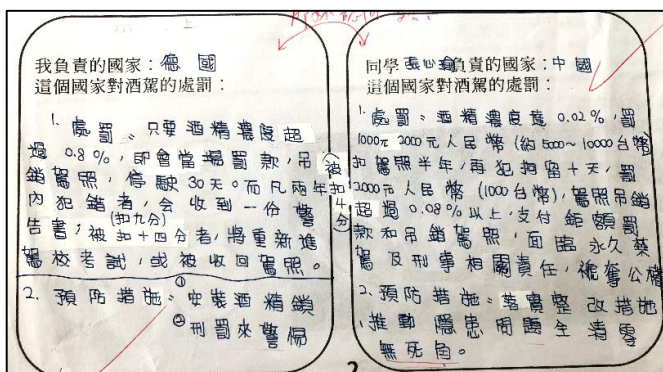 我負責的國家：德國
這個國家對酒駕的處罰：
1. 處罰：只要酒精濃度超
過 0.8%，即會當場罰款，吊
銷駕照，停駛30天。而凡兩年
(被扣4分)
內犯錯者，會收到一份警
告書；被扣十四分者，將重新進
(扣九分)
駕校考試，或被收回駕照。
2. 預防措施：①安裝酒精鎖
②刑罰來警惕
同學 張心 負責的國家：中國
這個國家對酒駕的處罰：
1. 處罰：酒精濃度達 0.02%，罰
1000元 2000元人民幣(約5000~10000台幣)
扣駕照半年，再犯拘留十天，罰
2000元人民幣(1000台幣)，駕照吊銷
超過 0.08%以上，支付鉅額罰
款和吊銷駕照，面臨永久禁
駕及刑事相關責任，褫奪公權
2. 預防措施：落實整改措施
，推動隱患問題全清零
無死角。